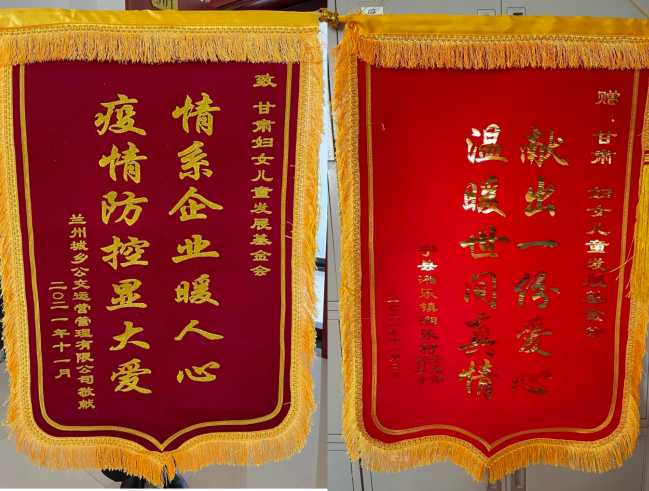 致 甘肃妇女儿童发展基金会
情系企业暖人心
疫情防控显大爱
兰州城乡公交运营管理有限公司敬献
二〇二一年十一月
赠：甘肃 妇女儿童发展基金会
献出一份爱心
温暖世间真情
宁县湘乐镇湘乐村